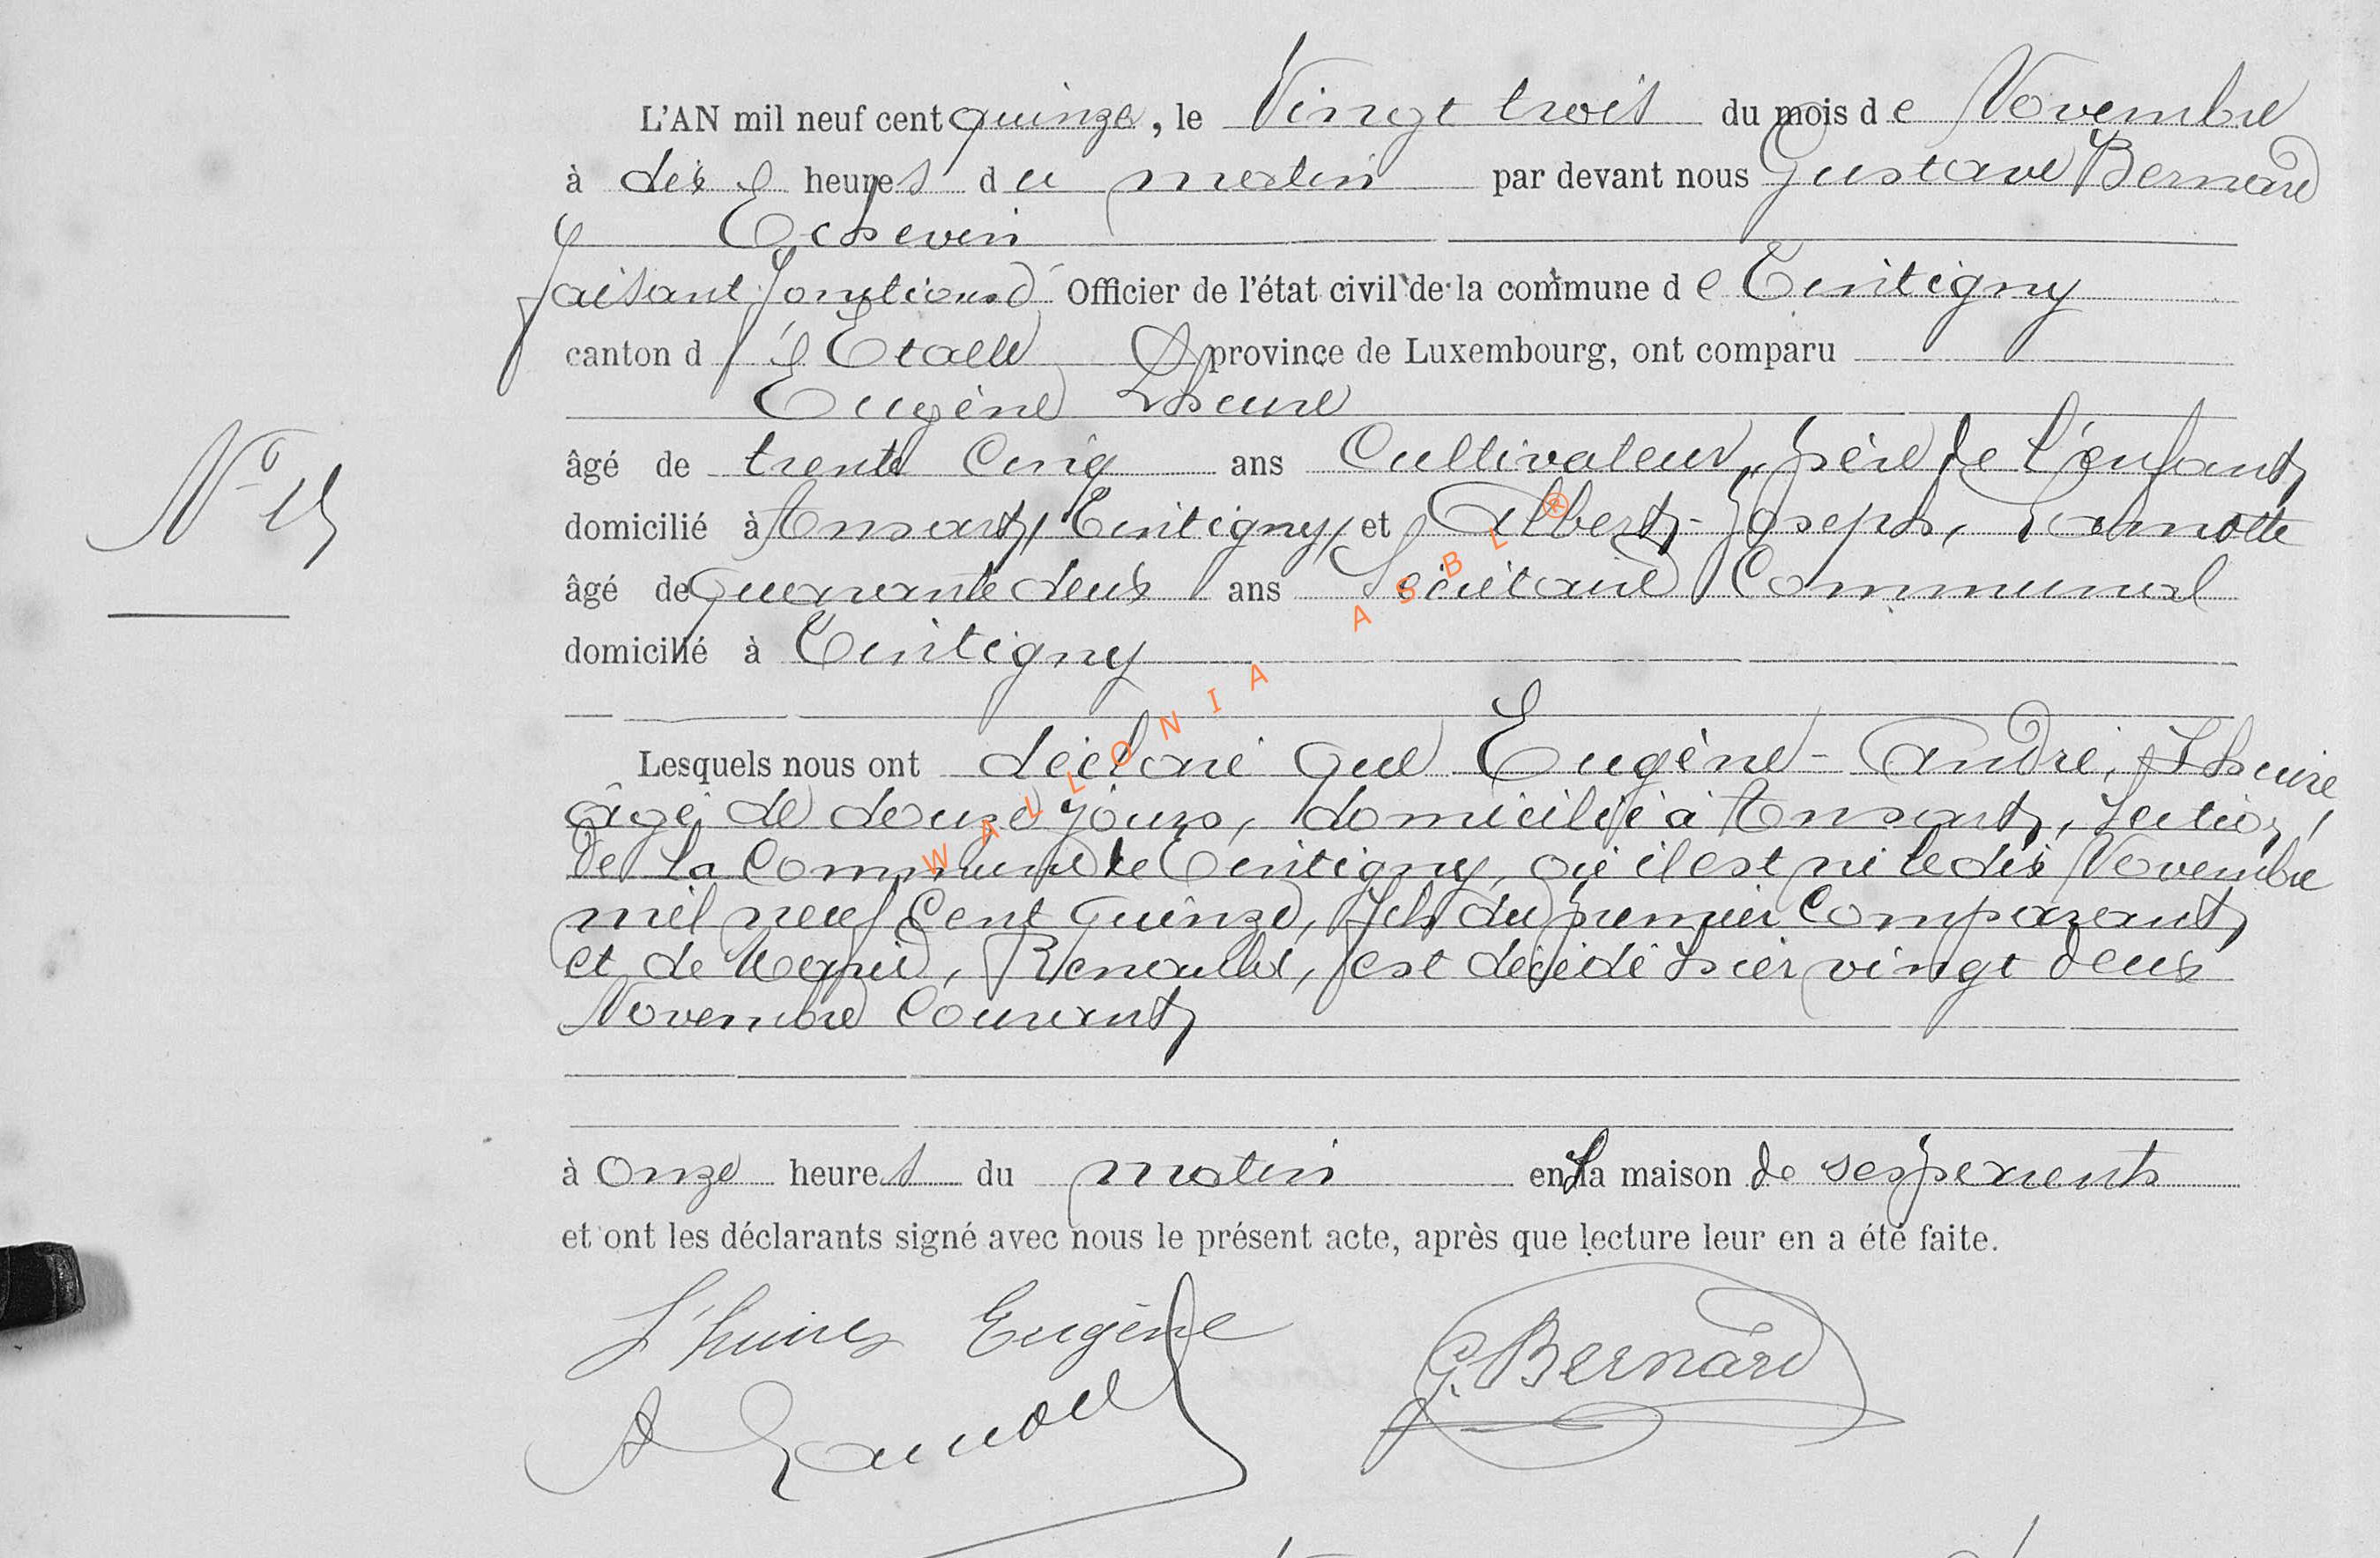 L'AN mil neuf cent quinze, le Vingt trois du mois de Novembre
à dix heures du matin par devant nous Gustave Bernard
Echevin
faisant fonctions d' Officier de l'état civil de la commune de Tintigny
canton d'Etalle province de Luxembourg, ont comparu
Eugène Lhuire
âgé de trente Cinq ans Cultivateur, père de l'enfant,
N° 15
domicilié à Ansart, Tintigny, et Albert-Joseph, Lamotte
âgé de quarante deux ans Secrétaire Communal
domicilié à Tintigny
Lesquels nous ont déclaré que Eugène-André, Lhuire
âgé de douze jours, domicilié à Ansart, section,
de la Commune de Tintigny, où il est né le dix Novembre
mil neuf Cent quinze, fils du premier Comparant,
et de Renauld, est décédé hier vingt deux
Novembre Courant,
à Onze heures du matin en la maison de ses parents
et ont les déclarants signé avec nous le présent acte, après que lecture leur en a été faite.
L'huire Eugène
G. Bernard
A Lamotte
WALLONIA ASBL ®